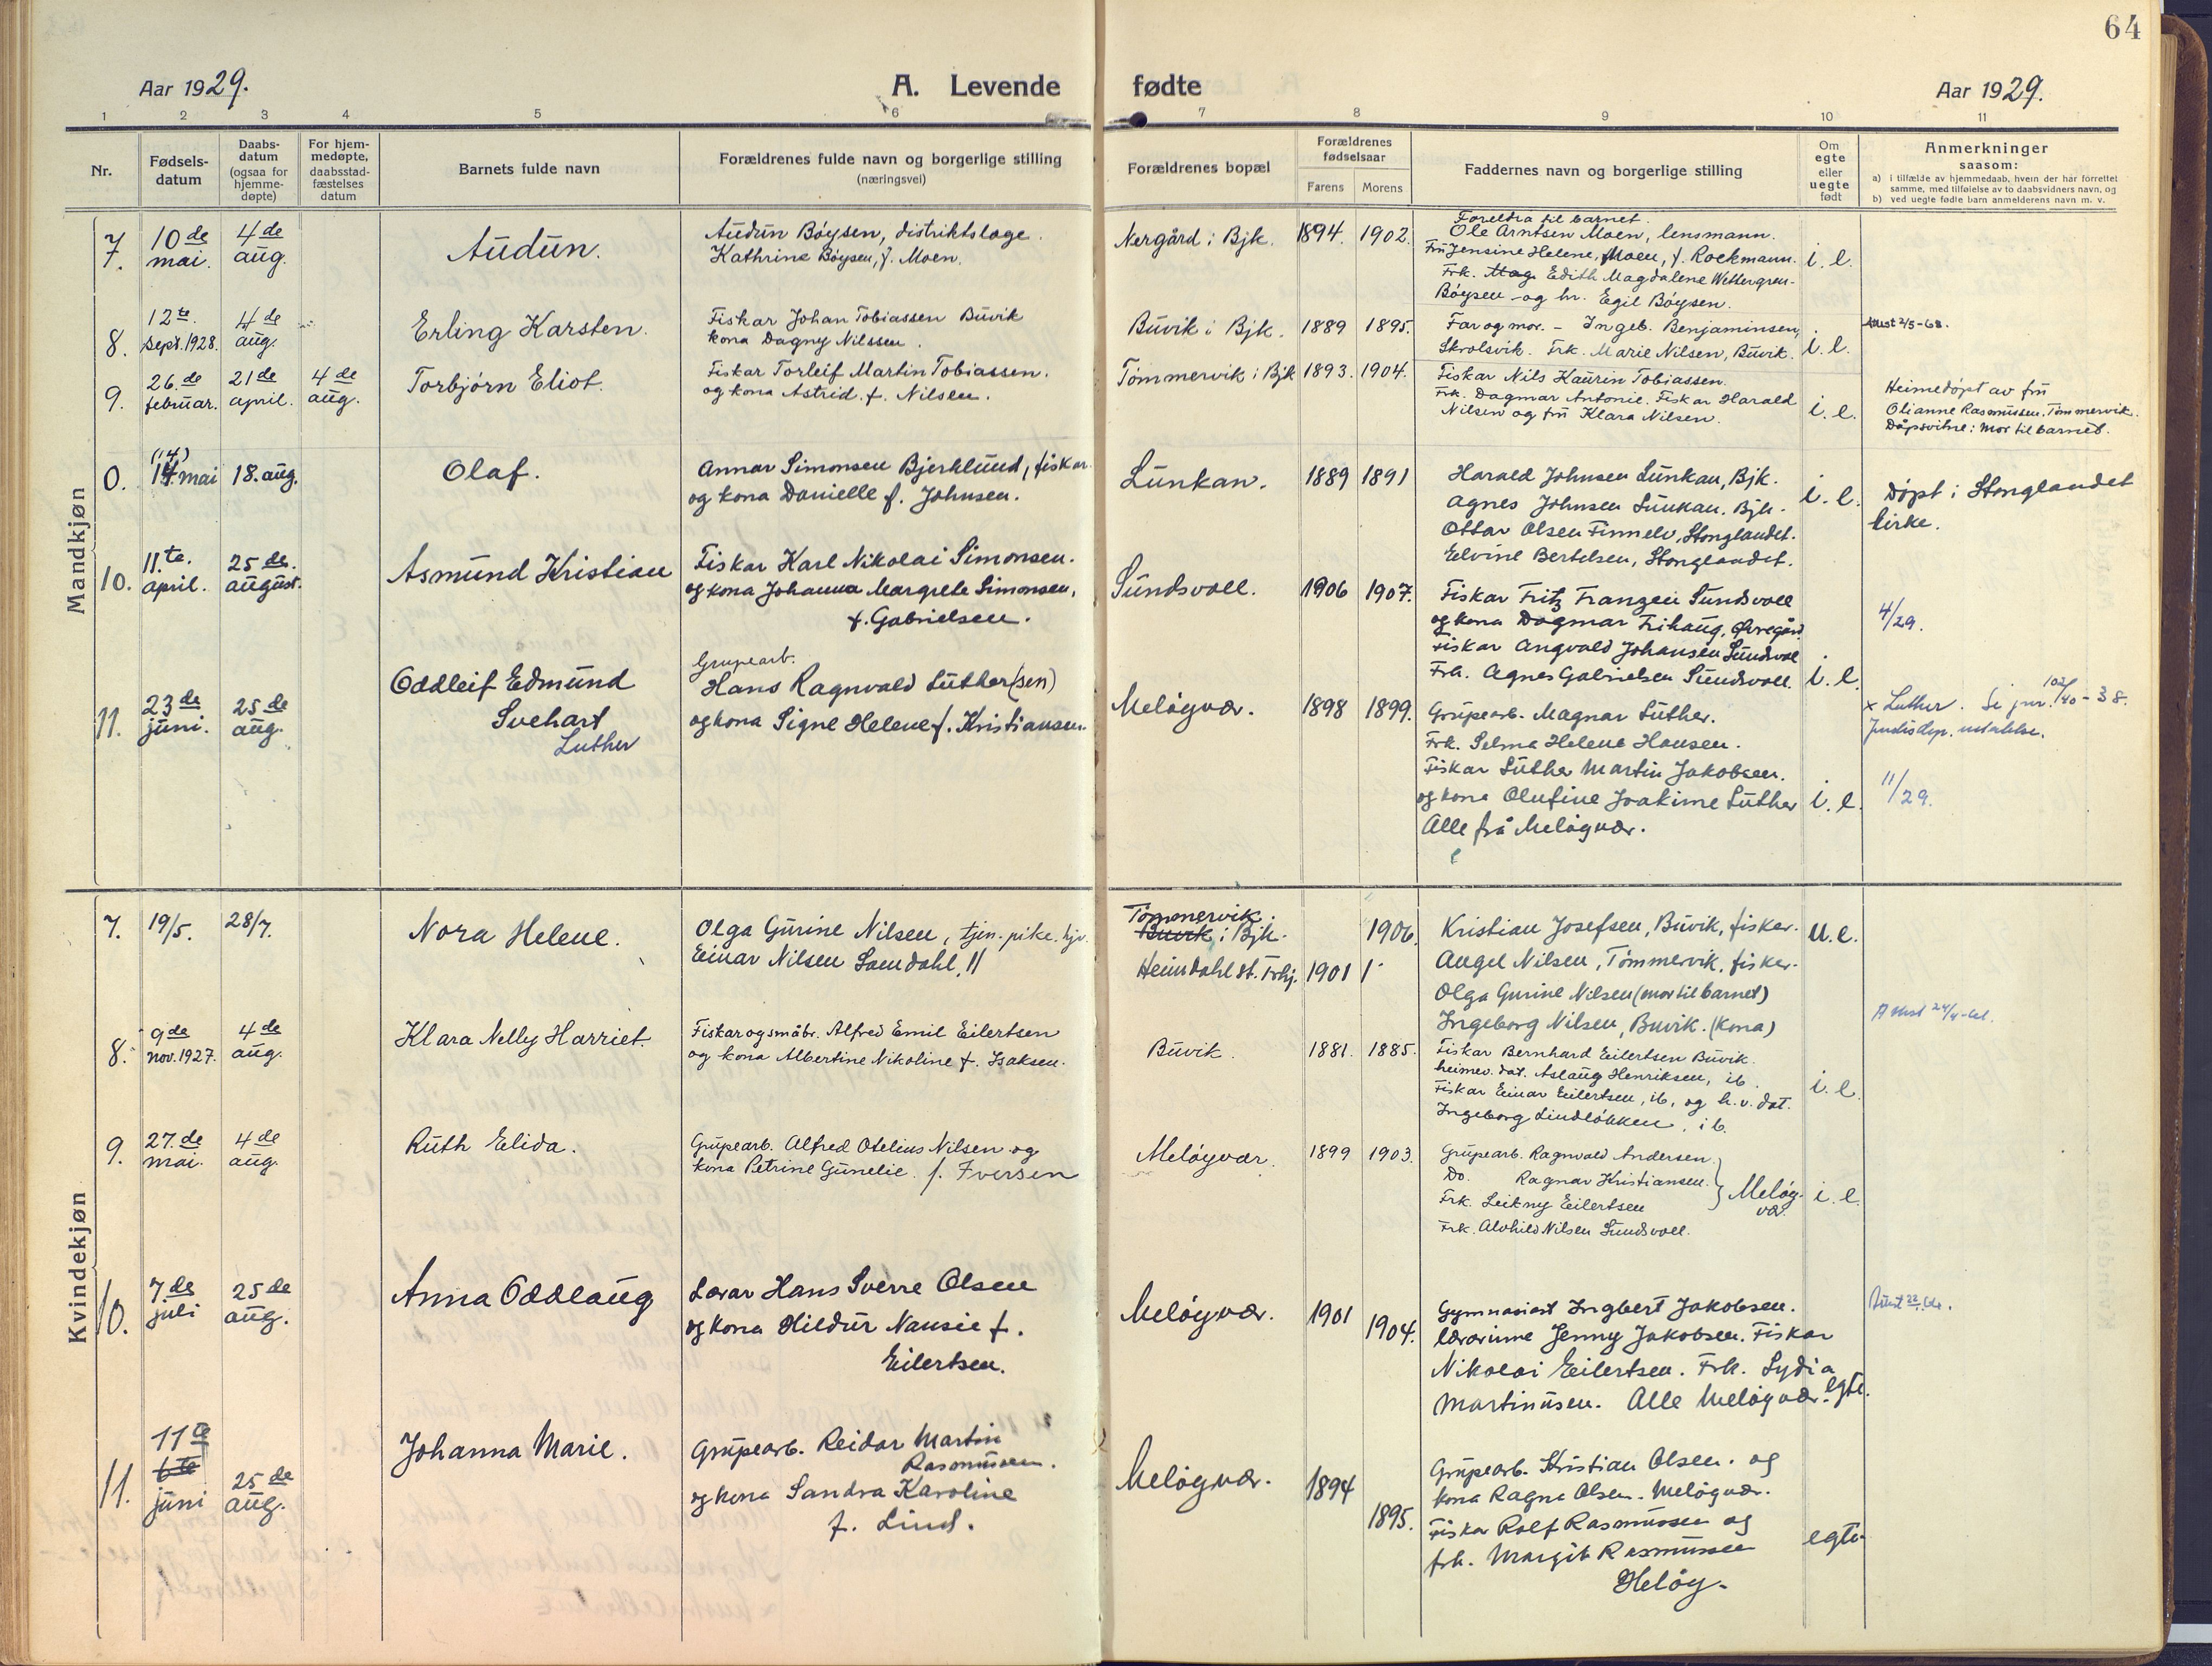 64
Aar 1929.
A. Levende fødte
Aar 1929.
1 2 3 4 5 6 7 8 9 10 11
Nr.
Fødsels-
datum
Daabs-
datum
(ogsaa for
hjemme-
døpte)
For hjem-
medøpte,
daabsstad-
fæstelses
datum
Barnets fulde navn
Forældrenes fulde navn og borgerlige stilling
(næringsvei)
Forældrenes bopæl
Forældrenes
fødselsaar
Farens Morens
Faddernes navn og borgerlige stilling
Om
egte
eller
uegte
født
Anmerkninger
saasom:
a) i tilfælde av hjemmedaab, hvem der har forrettet
samme, med tilføielse av to daabsvidners navn, og
b) ved uegte fødte barn anmelderens navn m. v.
Mandkjøn
7.
10de
mai.
4de
aug.
Audun.
Audun Bøysen, distriktslæge.
Kathrine Bøysen, f. Moen.
Nergård i Bjk.
1894. 1902.
Foreldra til barnet.
Ole Arntsen Moen, lensmann.
Fru Jensine Helene Moen, f. Rockmann.
Frk. Mag Edith Magdalene Wettergren-
Bøysen og hr. Egil Bøysen.
i. e.
8.
12te.
sept. 1928.
4de
aug.
Erling Karsten.
Fiskar Johan Tobiassen Buvik
kona Dagny Nilssen.
Buvik i Bjk.
1889 1895.
Far og mor. - Ingeb. Benjaminsen,
Skrolsvik. Frk. Marie Nilsen, Buvik.
i. e.
Attest 2/5-68.
9.
26.de
februar.
21de
april.
4de
aug.
Torbjørn Eliot.
Fiskar Torleif Martin Tobiassen.
og kona Astrid. f. Nilsen.
Tømmervik i Bjk
1893. 1904.
Fiskar Nils Kaurin Tobiassen.
Frk. Dagmar Antonie. Fiskar Harald
Nilsen og fru Klara Nilsen.
i. e.
Heimedøpt av fru
Olianne Rasmussen. Tømmervik.
Dåpsvitne: mor til barnet.
0.
(14)
14. mai
18. aug.
Olaf.
Annar Simonsen Bjerklund, fiskar
og kona Danielle f. Johnsen.
Lunkan.
1889 1891
Harald Johnsen Lunkan, Bjk.
Agnes Johnsen Lunkan. Bjk.
Ottar Olsen Finnelv, Stonglandet.
Eelvine Bertelsen, Stonglandet.
i. e.
Døpt i Stonglandet
kirke.
10.
11.te.
april.
25de.
august.
Asmund Kristian
Fiskar Karl Nikolai Simonsen.
og kona Johanna Margrete Simonsen,
f. Gabrielsen.
Sundsvoll.
1906 1907.
Fiskar Fritz Franzen Sundsvoll
og kona Dagmar Frihaug, Øvregård
Fiskar Angvald Johansen Sundsvoll
Frk. Agnes Gabrielsen Sundsvoll.
i. e.
4/29.
11.
23de
juni.
25de
aug.
Oddleif Edmund
Svehart
Luther
Grupearb.
Hans Ragnvald Luther(sen)
og kona Signe Helene f. Kristiansen.
Meløyvær.
1898 1899.
Grupearb. Magnar Luther.
Frk. Selma Helene Hansen.
Fiskar Luther Martin Jakobsen.
og kona Olufine Joakime Luther
Alle frå Meløyvær.
i. e.
x Luther. Se jnr. 102/40-38.
11/29.
Kvindekjøn
7.
19/5.
28/7.
Nora Helene.
Olga Gurine Nilsen, tjen. pike. hjv.
Einar Nilsen Samdahl, //
Tømmervik.
Buvik i Bjk.
Heimdahl st. Trhj.
1906.
1901
Kristian Josefsen, Buvik, fisker.
Angel Nilsen, Tømmervik, fisker.
Olga Gurine Nilsen (mor til barnet)
Ingeborg Nilsen, Buvik. (kona)
u. e.
8.
9de
nov. 1927.
4de
aug.
Klara Nelly Harriet.
Fiskar og småbr. Alfred Emil Eilertsen
og kona Albertine Nikoline f. Isaksen.
Buvik.
1881. 1885.
Fiskar Bernhard Eilertsen Buvik.
heimev. dat. Aslaug Henriksen, ib.
Fiskar Einar Eilertsen, ib, og h.v. dat.
Ingeborg Lindløkken, ib.
i. e.
9.
27.de
mai.
4de
aug.
Ruth Elida.
Grupearb. Alfred Otelius Nilsen og
kona Petrine Gunelie. f. Iversen
Meløyvær.
1899 1903.
Grupearb. Ragnvald Andersen
Do. Ragnar Kristiansen.
Frk. Leikny Eilertsen
Frk. Alvhild Nilsen Sundsvoll.
Meløy-
vær.
i. e.
10.
7.de
juli
25de
aug.
Anna Oddlaug
Lærar Hans Sverre Olsen
og kona Hildur Nansie f.
Eilertsen.
Meløyvær.
1901
1904.
Gymnasiast Ingbert Jakobsen.
lærarinne Jenny Jakobsen. Fiskar
Nikolai Eilertsen. Frk. Lydia
Martinusen. Alle Meløyvær.
egte.
11.
11te
6te
juni
25de
aug.
Johanna Marie.
Grupearb. Reidar Martin
Rasmussen.
og kona Sandra Karoline
f. Lind.
Meløyvær.
1894
1895.
Grupearb. Kristian Olsen. og
kona Ragna Olsen. Meløyvær.
Fiskar Rolf Rasmussen og
frk. Margit Rasmussen
Meløy.
egte